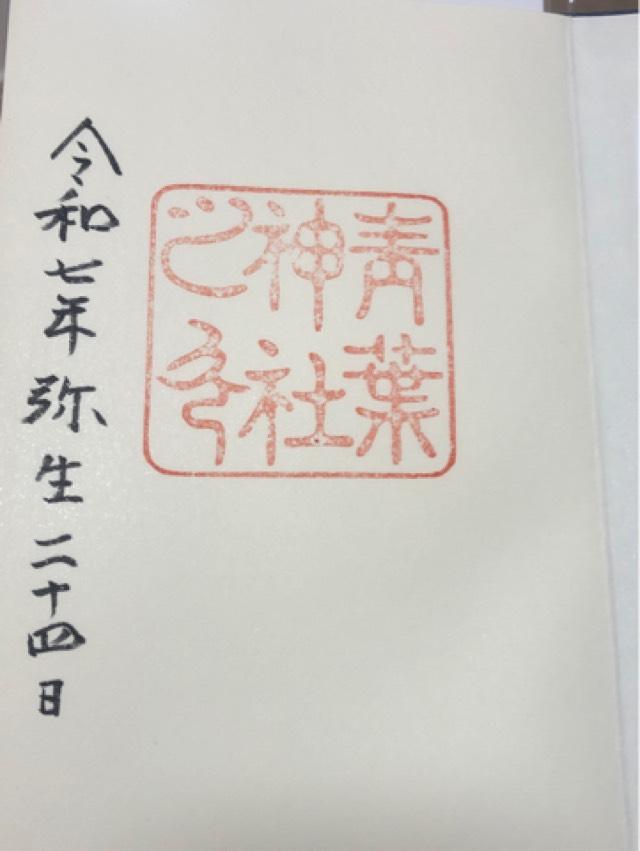 青葉
神社
之印
令和七年弥生二十四日